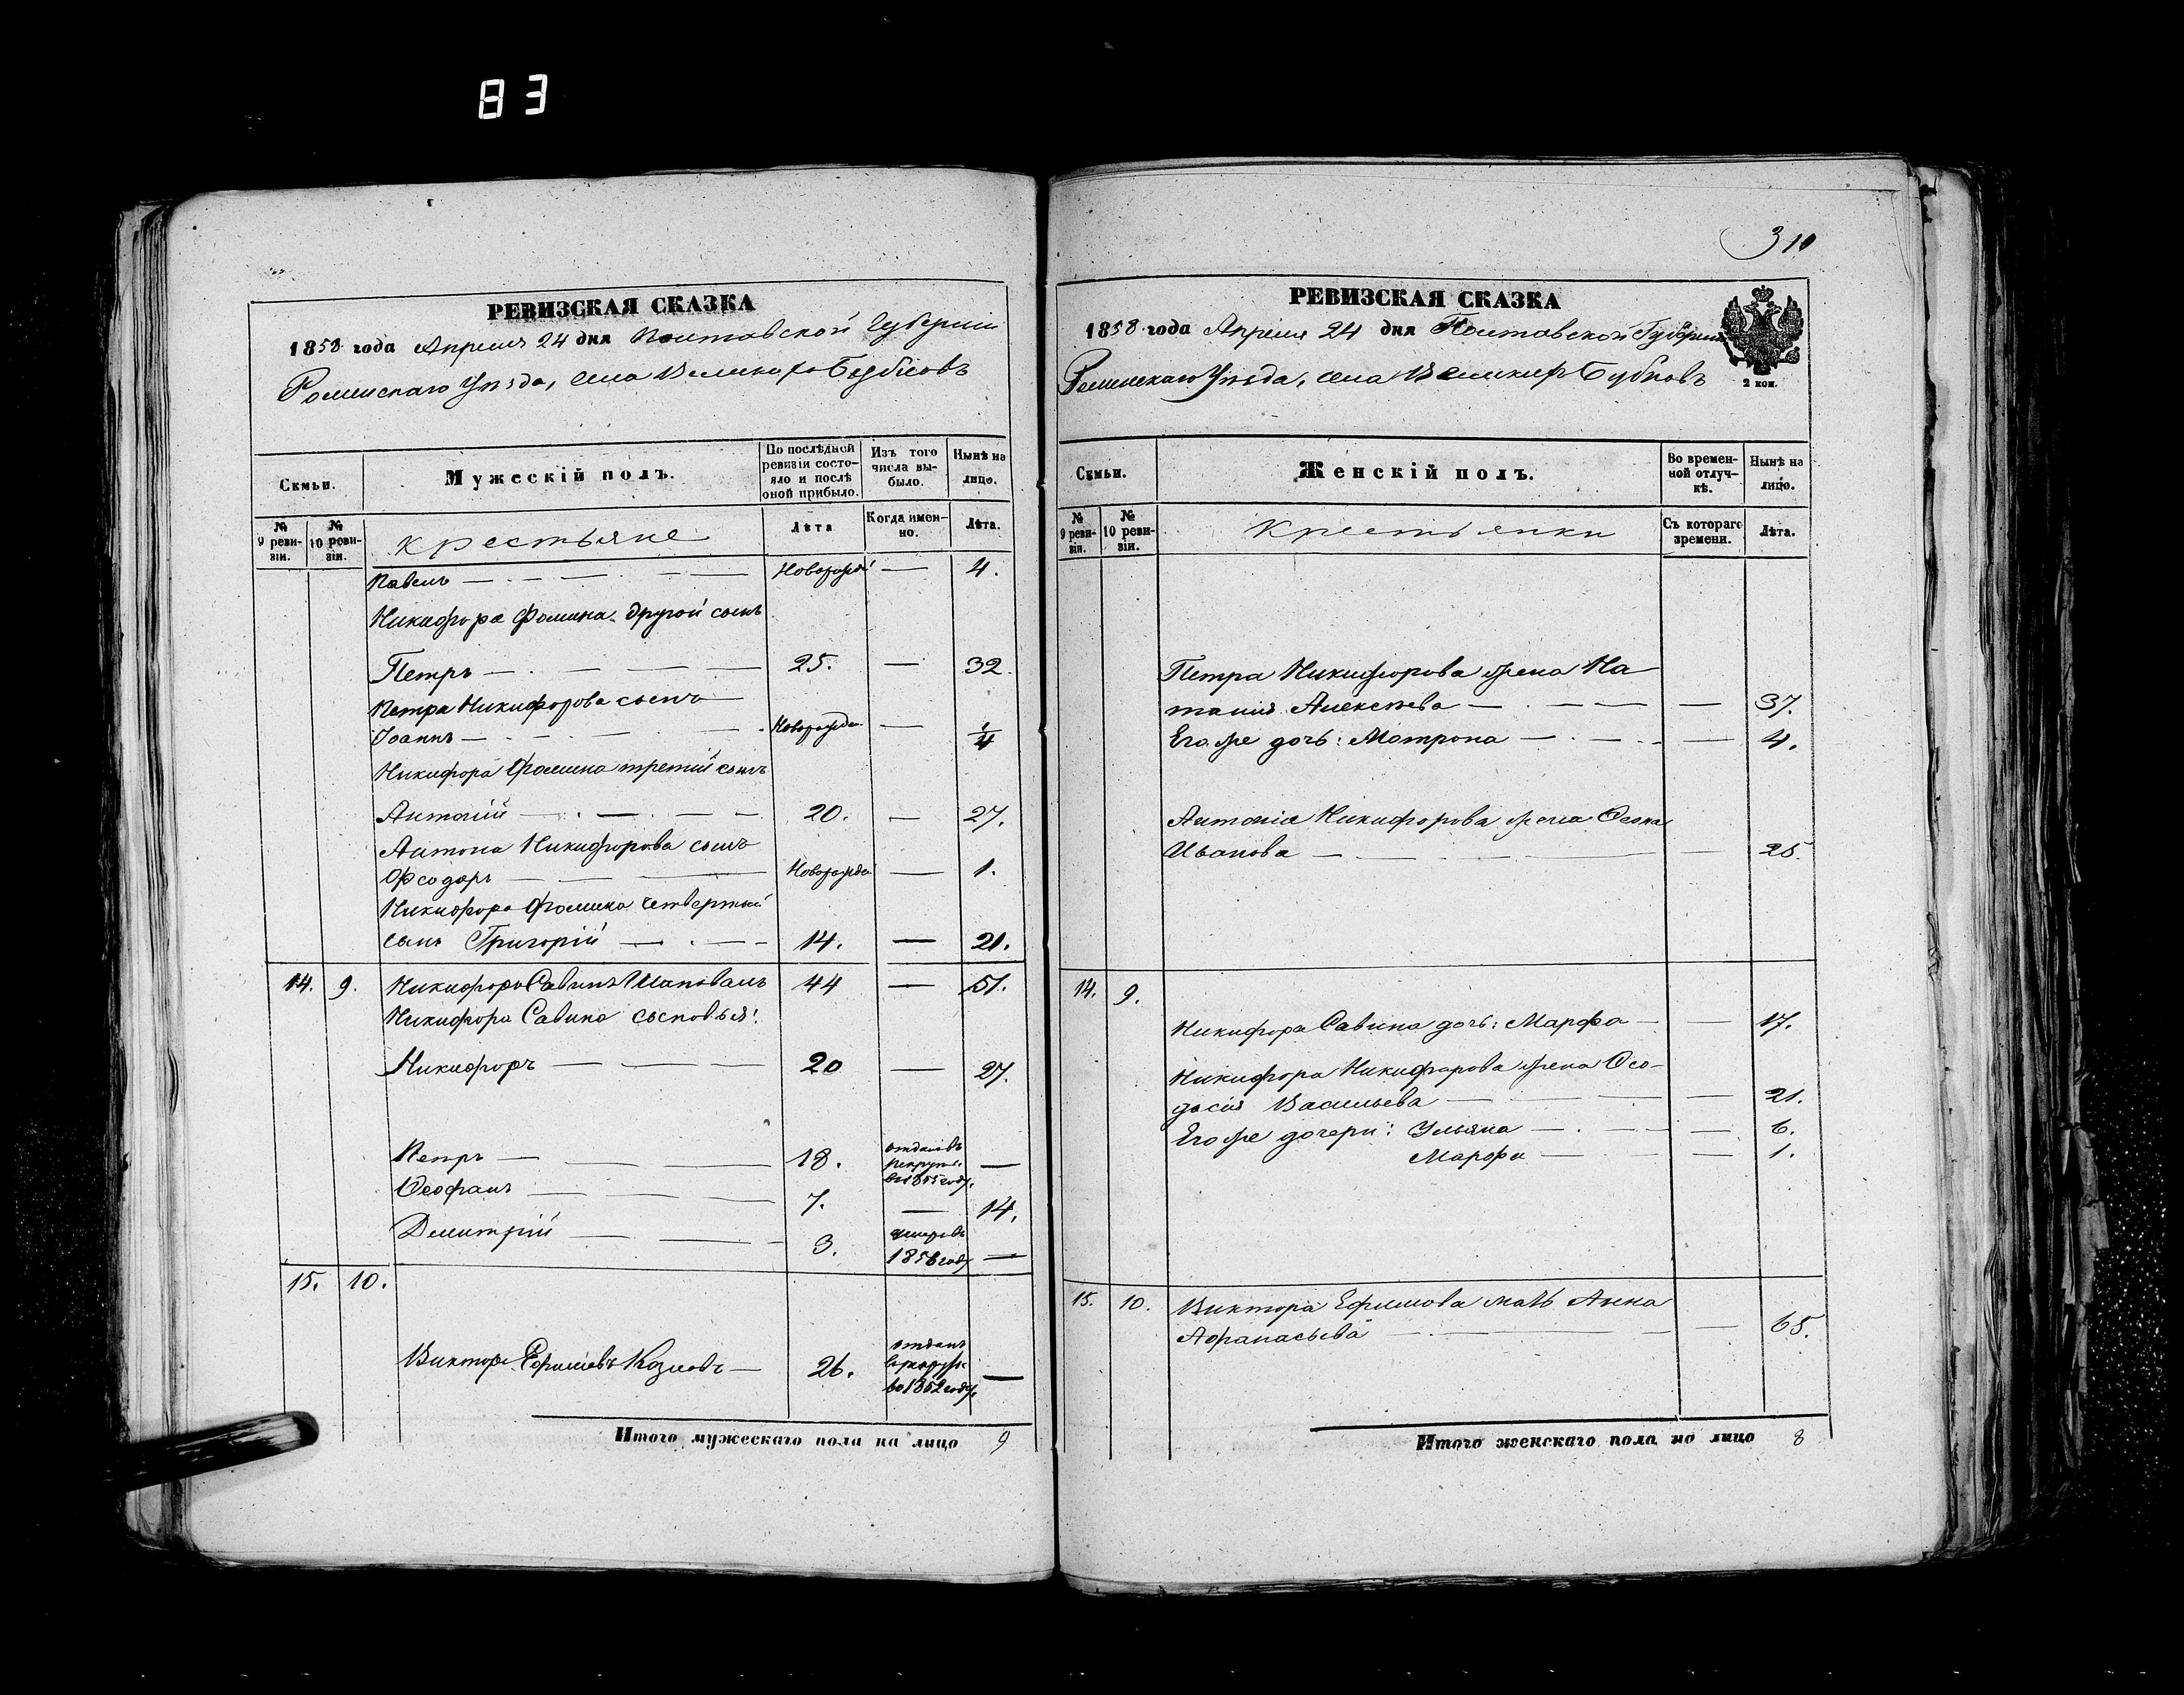 83
РЕВИЗСКАЯ СКАЗКА
1858 года Апреля 24 дня Полтавской Губерніи
Роменскаго Уѣзда, села Великихъ Бубновъ
Семьи.
Мужескій полъ.
По послѣдней ревизіи состояло и послѣ оной прибыло.
Изъ того числа выбыло.
Нынѣ на лицо.
№ 9 ревизіи.
№ 10 ревизіи.
крестьяне
Лѣта
Когда именно.
Лѣта.
Павелъ — Новорожд — 4.
Никифора Фомина другой сынъ
Петръ — 25. — 32.
Петра Никифорова сынъ
Іоаннъ — Новорожде — 1/4
Никифора Фомина третій сынъ
Антоній — 20. — 27.
Антона Никифорова сынъ
Ѳеодоръ — Новорожде — 1.
Никифора Фомина четвертый
сынъ Григорій — 14. — 21.
14. 9. Никифоръ Савинъ Шаповалъ 44 — 51.
Никифора Савина сыновья:
Никифоръ — 20 — 27.
Петръ — 18. отданъ въ рекруты въ 1855 году. —
Ѳеофанъ — 7. — 14.
Димитрій — 3. умеръ въ 1856 году —
15. 10.
Викторъ Ефимовъ Козловъ — 26. отданъ в рекруты въ 1852 году. —
Итого мужескаго пола на лицо 9
310
РЕВИЗСКАЯ СКАЗКА
1858 года Апреля 24 дня Полтавской Губерніи
Роменскаго Уѣзда, села Великихъ Бубновъ
2 коп.
Семьи.
Женскій полъ.
Во временной отлучкѣ.
Нынѣ на лицо.
№ 9 ревизіи.
№ 10 ревизіи.
крестьянки
Съ котораго времени.
Лѣта.
Петра Никифорова жена На-
талія Алексѣева — — 37.
Его же дочь: Мотрона — — 4.
Антонія Никифорова жена
Иванова — — 25.
14. 9.
Никифора Савина дочь: Марфа — — 17.
Никифора Никифорова жена Ѳео-
досія Васильева — — 21.
Его же дочери: Ульяна — — 6.
Марфа — — 1.
15. 10. Виктора Ефимова мать Анна
Афанасьева — — 65.
Итого женскаго пола на лицо 8